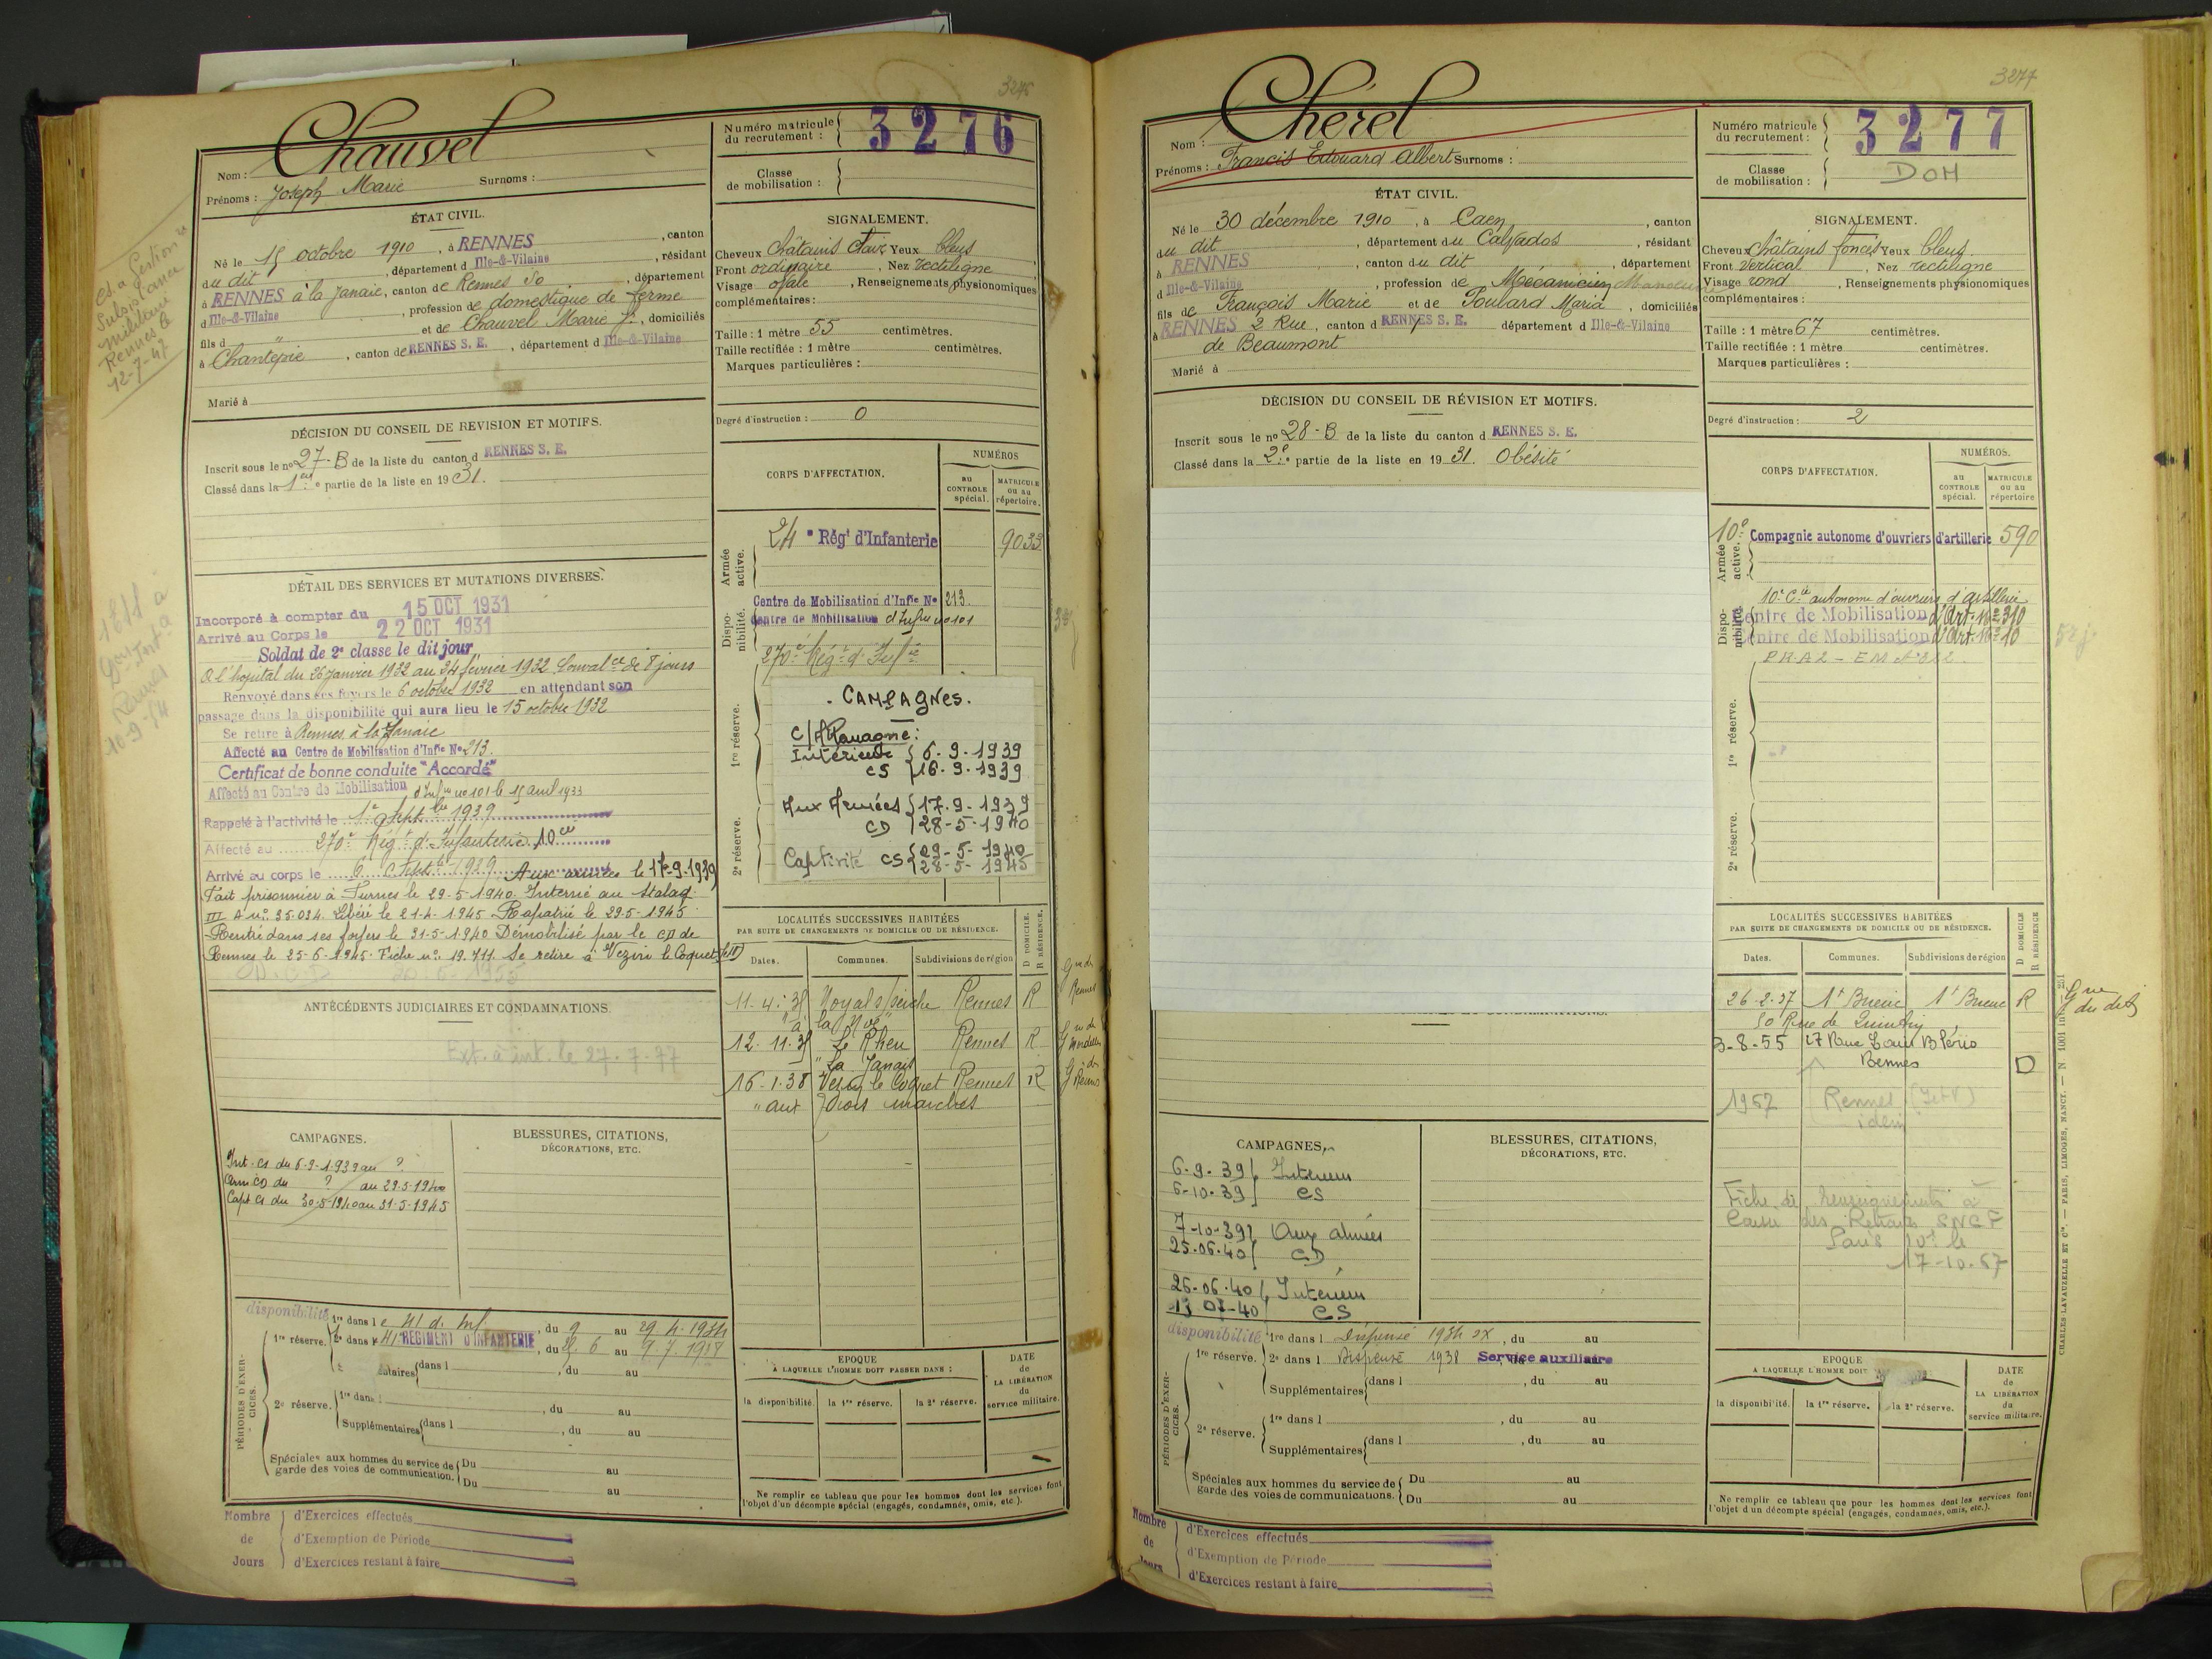 3276
Chauvel
Nom :
Prénoms : Joseph Marie Surnoms :
Numéro matricule du recrutement : 3276
Classe de mobilisation :
ÉTAT CIVIL.
Né le 15 octobre 1910, à RENNES, canton
du dit, département d Ille-&-Vilaine, résidant
à RENNES à la Janaie, canton de Rennes So, département
d Ille-&-Vilaine, profession de domestique de ferme
fils d " et de Chauvel Marie J., domiciliés
à Chantepie, canton de RENNES S. E., département d Ille-&-Vilaine
Marié à
SIGNALEMENT.
Cheveux Châtains clair Yeux bleus
Front ordinaire, Nez rectiligne
Visage ovale, Renseignements physionomiques
complémentaires :
Taille : 1 mètre 55 centimètres.
Taille rectifiée : 1 mètre centimètres.
Marques particulières :
Degré d'instruction : 0
DÉCISION DU CONSEIL DE REVISION ET MOTIFS.
Inscrit sous le nº 27-B de la liste du canton d RENNES S. E.
Classé dans la 1ère partie de la liste en 1931.
DÉTAIL DES SERVICES ET MUTATIONS DIVERSES.
Incorporé à compter du 15 OCT 1931
Arrivé au Corps le 22 OCT. 1931
Soldat de 2e classe le dit jour
A l'hôpital du 26 janvier 1932 au 24 février 1932 Convalce de 8 jours
Renvoyé dans ses foyers le 6 octobre 1932 en attendant son
passage dans la disponibilité qui aura lieu le 15 octobre 1932
Se retire à Rennes à la Janaie
Affecté au Centre de Mobilisation d'Infie No 213.
Certificat de bonne conduite "Accordé"
Affecté au Centre de Mobilisation d'Infie no 101 le 15 avril 1933
Rappelé à l'activité le 1er Septbre 1939
Affecté au 270e Régt d'Infanterie 10e Cie
Arrivé au corps le 6 Septbre 1939. Aux armées le 17-9-1939
Fait prisonnier à Furnes le 29-5-1940. Interné au Stalag
III A nº 35.034. Libéré le 21-4-1945 Rapatrié le 29-5-1945
Rentré dans ses foyers le 31-5-1940 Démobilisé par le CD de
Rennes le 25-6-1945. Fiche nº 19.711 Se retire à Vezin le Coquet (I&V)
ANTÉCÉDENTS JUDICIAIRES ET CONDAMNATIONS.
Ext. à int. le 27-7-77
CAMPAGNES.
Int. CS du 6-9-1939 au ?
Arm CD du ? au 29-5-1940
Capt CS du 30-5-1940 au 31-5-1945
BLESSURES, CITATIONS,
DÉCORATIONS, ETC.
disponibilité
PÉRIODES D'EXERCICES.
1re réserve. 1re dans le 41 d. Inf, du 9 au 29.4.1934
2e dans 41 REGIMENT D'INFANTERIE, du 6 au 9.7.1938
dans l , du au
2e réserve. 1re dans l , du au
Supplémentaires dans l , du au
Spéciales aux hommes du service de garde des voies de communication. Du au
Du au
Nombre de Jours
d'Exercices effectués
d'Exemption de Période
d'Exercices restant à faire
CORPS D'AFFECTATION.
NUMÉROS
au CONTROLE spécial.
MATRICULE ou au répertoire.
Armée active.
24e Régt d'Infanterie 9033
Disponibilité.
Centre de Mobilisation d'Infie No 213.
Centre de Mobilisation d'Infie no 101
270e Régt d'Infie
1re réserve.
2e réserve.
CAMPAGNES.
C/ Allemagne :
Intérieur 6-9-1939
CS 16-9-1939
Aux Armées 17-9-1939
CD 28-5-1940
Captivité CS 29-5-1940
28-5-1945
LOCALITÉS SUCCESSIVES HABITÉES
PAR SUITE DE CHANGEMENTS DE DOMICILE OU DE RÉSIDENCE.
D DOMICILE. R RÉSIDENCE.
Dates. Communes. Subdivisions de région
11-4-35 Noyal s/seiche Rennes R
"à la Noë"
12-11-35 Le Rheu Rennes R
"La Janais"
16-1-38 Vezin le Coquet Rennes R
"aux trois marches"
EPOQUE
A LAQUELLE L'HOMME DOIT PASSER DANS :
la disponibilité. la 1re réserve. la 2e réserve.
DATE de LA LIBÉRATION du service militaire.
Ne remplir ce tableau que pour les hommes dont les services font
l'objet d'un décompte spécial (engagés, condamnés, omis, etc.).
3277
Chérel
Nom :
Prénoms : Francis Edouard Albert Surnoms :
Numéro matricule du recrutement : 3277
Classe de mobilisation : DOM
ÉTAT CIVIL.
Né le 30 décembre 1910, à Caen, canton
du dit, département du Calvados, résidant
à RENNES, canton du dit, département
d Ille-&-Vilaine, profession de Mécanicien
fils de François Marie et de Poulard Maria, domiciliés
à RENNES 2 Rue, canton d RENNES S. E. département d Ille-&-Vilaine
de Beaumont
Marié à
SIGNALEMENT.
Cheveux châtains foncés Yeux bleus
Front vertical, Nez rectiligne
Visage rond, Renseignements physionomiques
complémentaires :
Taille : 1 mètre 67 centimètres.
Taille rectifiée : 1 mètre centimètres.
Marques particulières :
Degré d'instruction : 2
DÉCISION DU CONSEIL DE RÉVISION ET MOTIFS.
Inscrit sous le nº 28-B de la liste du canton d RENNES S. E.
Classé dans la 2e partie de la liste en 1931. Obésité
CORPS D'AFFECTATION.
NUMÉROS.
au CONTROLE spécial.
MATRICULE ou au répertoire
Armée active.
10e Compagnie autonome d'ouvriers d'artillerie 590
Disponibilité.
10e Cie autonome d'ouvriers d'artillerie
Centre de Mobilisation d'Art. Nº 310
Centre de Mobilisation d'Art. Nº 10
1re réserve.
2e réserve.
LOCALITÉS SUCCESSIVES HABITÉES
PAR SUITE DE CHANGEMENTS DE DOMICILE OU DE RÉSIDENCE.
D DOMICILE R RÉSIDENCE
Dates. Communes. Subdivisions de région
26-2-37 St Brieuc St Brieuc R
50 Rue de Quintin
3-8-55 27 Rue Louis Blério
Rennes D
1957 Rennes (I et V)
idem
Fiche de renseignements à
Caisse des Retraites SNCF
Paris 10e le
17-10-67
CAMPAGNES.
6-9-39 Intérieur
6-10-39 CS
7-10-39 Aux armées
25.06.40 CD
26-06-40 Intérieur
13 07-40 CS
BLESSURES, CITATIONS,
DÉCORATIONS, ETC.
disponibilité
PÉRIODES D'EXERCICES.
1re réserve. 1re dans l Dispensé 1934 , du au
2e dans l Dispensé 1938 Service auxiliaire
Supplémentaires dans l , du au
2e réserve. 1re dans l , du au
Supplémentaires dans l , du au
Spéciales aux hommes du service de garde des voies de communications. Du au
Du au
Nombre de Jours
d'Exercices effectués
d'Exemption de Période
d'Exercices restant à faire
EPOQUE
A LAQUELLE L'HOMME DOIT
la disponibilité. la 1re réserve. la 2e réserve.
DATE de LA LIBÉRATION du service militaire.
Ne remplir ce tableau que pour les hommes dont les services font
l'objet d'un décompte spécial (engagés, condamnés, omis, etc.).
CHARLES-LAVAUZELLE ET Cie. — PARIS, LIMOGES, NANCY.